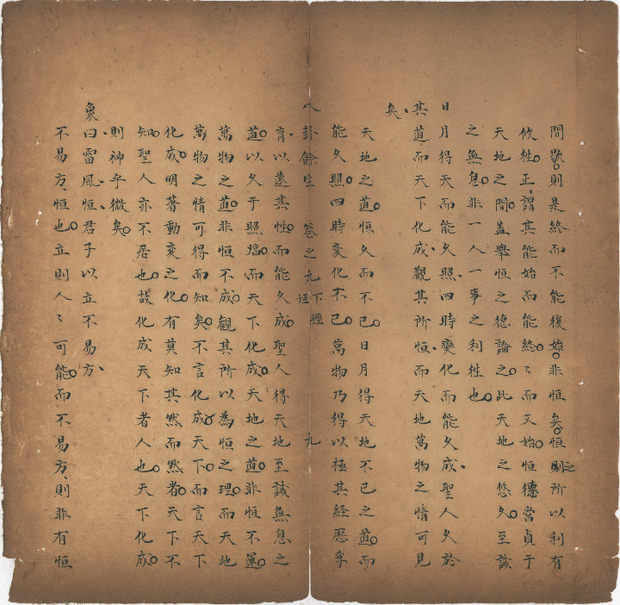 間歟則是終而不能復始非恒矣恒則之所以利有
攸往正謂其能始而能終〻而又始恒德當貞于
天地之間蓋舉恒之德論之此天地之悠久至誠
之無息非一人一事之利往也
日月得天而能久照四時變化而能久成聖人久於
其道而天下化成觀其所恒而天地萬物之情可見
矣
天地之道恒久而不已日月得天地不已之道而
能久照四時変化不已萬物乃得以極其經歷孚
八卦餘生 卷之九 下經 恒 九
育以遂其性而能久成聖人得天地至誠無息之
道以久于照臨而天下化成天地之道非恒不運
萬物之道非恒不成觀其所以為恒之理而天地
萬物之情可得而知矣不言化成天下而言天下
化成明著動変之化有莫知其然而然者天下不
知聖人亦不居也故化成天下者人也天下化成
則神乎微矣
象曰雷風恒君子以立不易方
不易方恒也立則人〻可能而不易方則非有恒